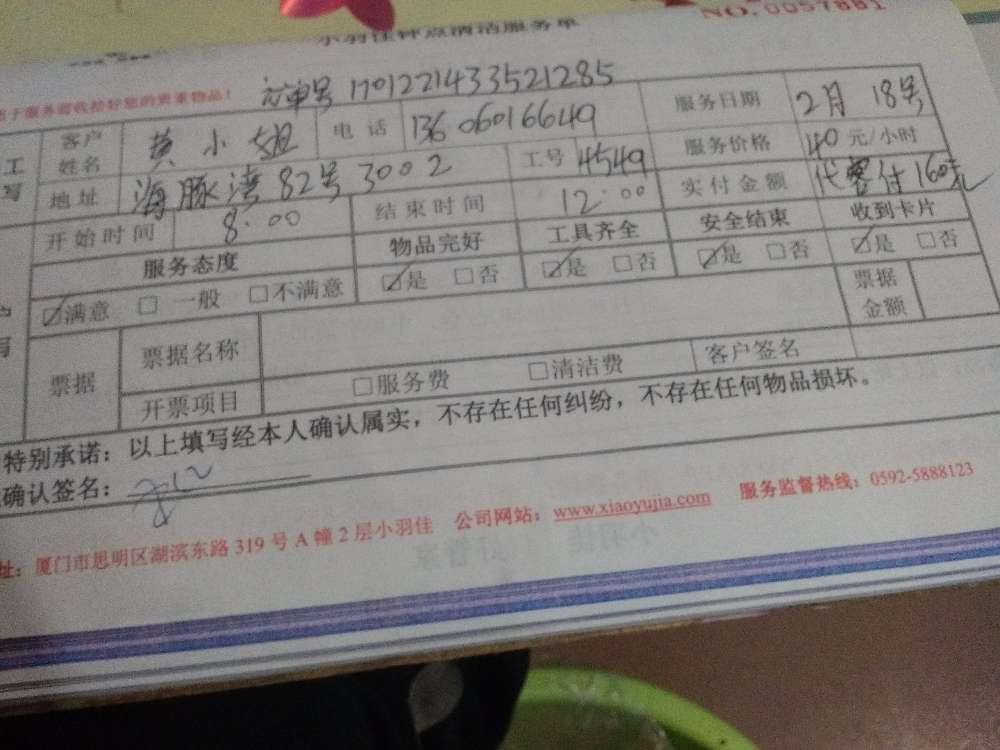 小羽佳钟点清洁服务单 NO.0057881
订单号 1701221433521285
客户姓名 黄小姐 电话 13606016649 服务日期 2月18号
地址 海豚湾82号3002 工号 4549 服务价格 40元/小时
开始时间 8:00 结束时间 12:00 实付金额 代客付160元
服务态度 物品完好 工具齐全 安全结束 收到卡片
☑满意 □一般 □不满意 ☑是 □否 ☑是 □否 ☑是 □否 ☑是 □否
票据 票据名称 票据金额
开票项目 □服务费 □清洁费 客户签名
特别承诺：以上填写经本人确认属实，不存在任何纠纷，不存在任何物品损坏。
确认签名：
址：厦门市思明区湖滨东路319号A幢2层小羽佳 公司网站：www.xiaoyujia.com 服务监督热线：0592-5888123